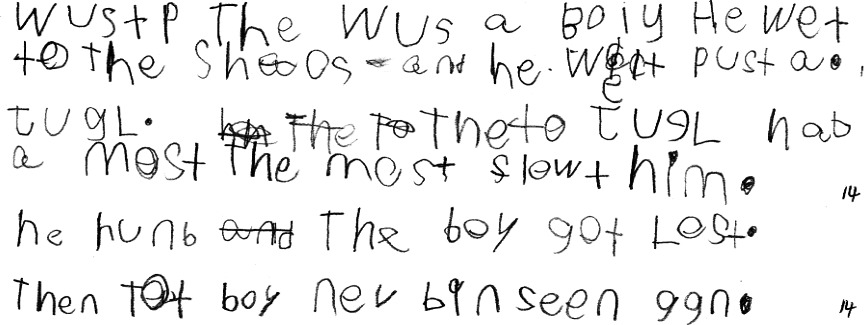 WUStP The WUS a BOiy He Wet
to the ShoOS and he. Wet PUSt a.
TUGL. The to TUGL hab
a most The most slowt him. 14
he hunb The boy got Lost.
Then Tot boy nev bin seen ggn. 14